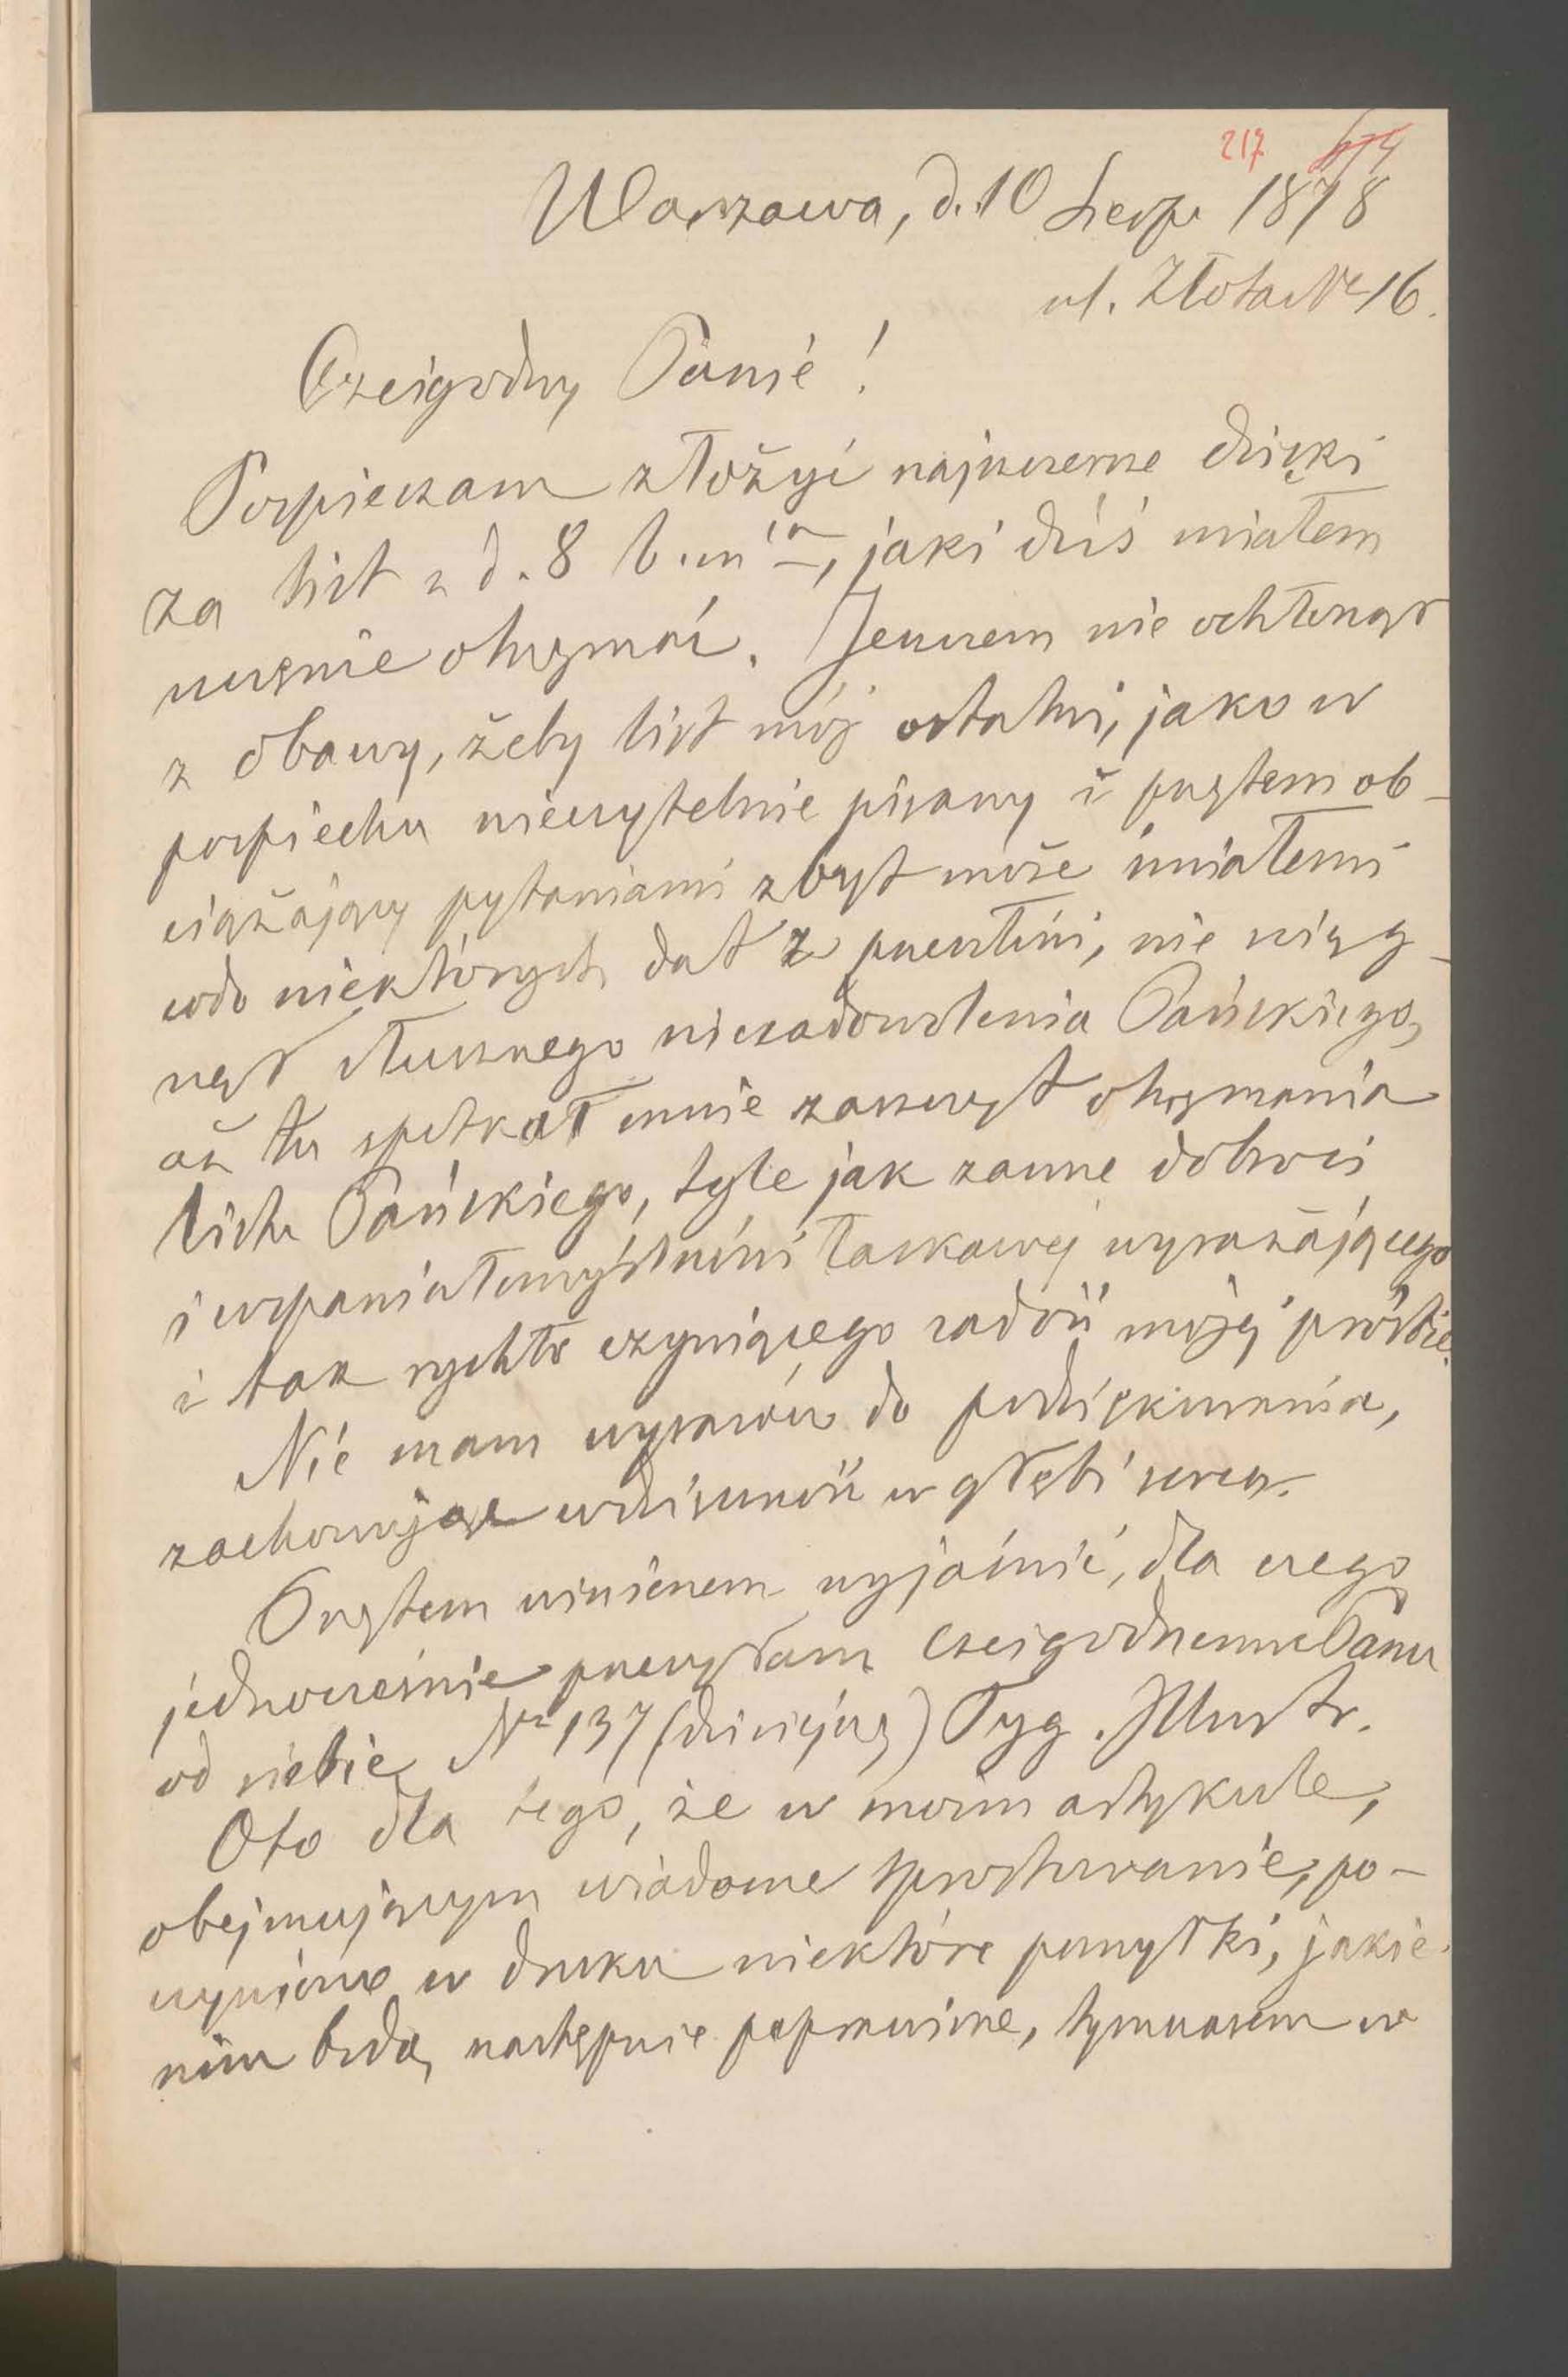 217
Warszawa, d. 10 Sierp. 1878
ul. Złota № 16.
Czcigodny Panie!
Pospieszam złożyć najszczersze dzięki
za list z d. 8 b. m., jaki dziś miałem
szczęście otrzymać. Jeszczem nie ochłonął
z obawy, żeby list mój ostatni, jako w
pospiechu nieczytelnie pisany i przytem ob-
ciążający pytaniami zbyt może śmiałemi
co do niektórych dat z przeszłości, nie ściąg-
nął słusznego niezadowolenia Pańskiego,
aż tu spotkał mnie zaszczyt otrzymania
listu Pańskiego, tyle jak zawsze dobroci
i wspaniałomyślności łaskawej wyrażającego
i tak rychło czyniącego zadość mojej prośbie.
Nie mam wyrazów do podziękowania,
zachowując wdzięczność w głębi serca.
Przytem winienem wyjaśnić, dla czego
jednocześnie przesyłam Czcigodnemu Panu
od siebie № 137 (dzisiejszy) Tyg. Illustr.
Oto dla tego, że w moim artykule,
obejmującym wiadome sprostowanie, po-
czyniono w druku niektóre pomyłki, jakie
nim będą następnie poprawione, tymczasem w